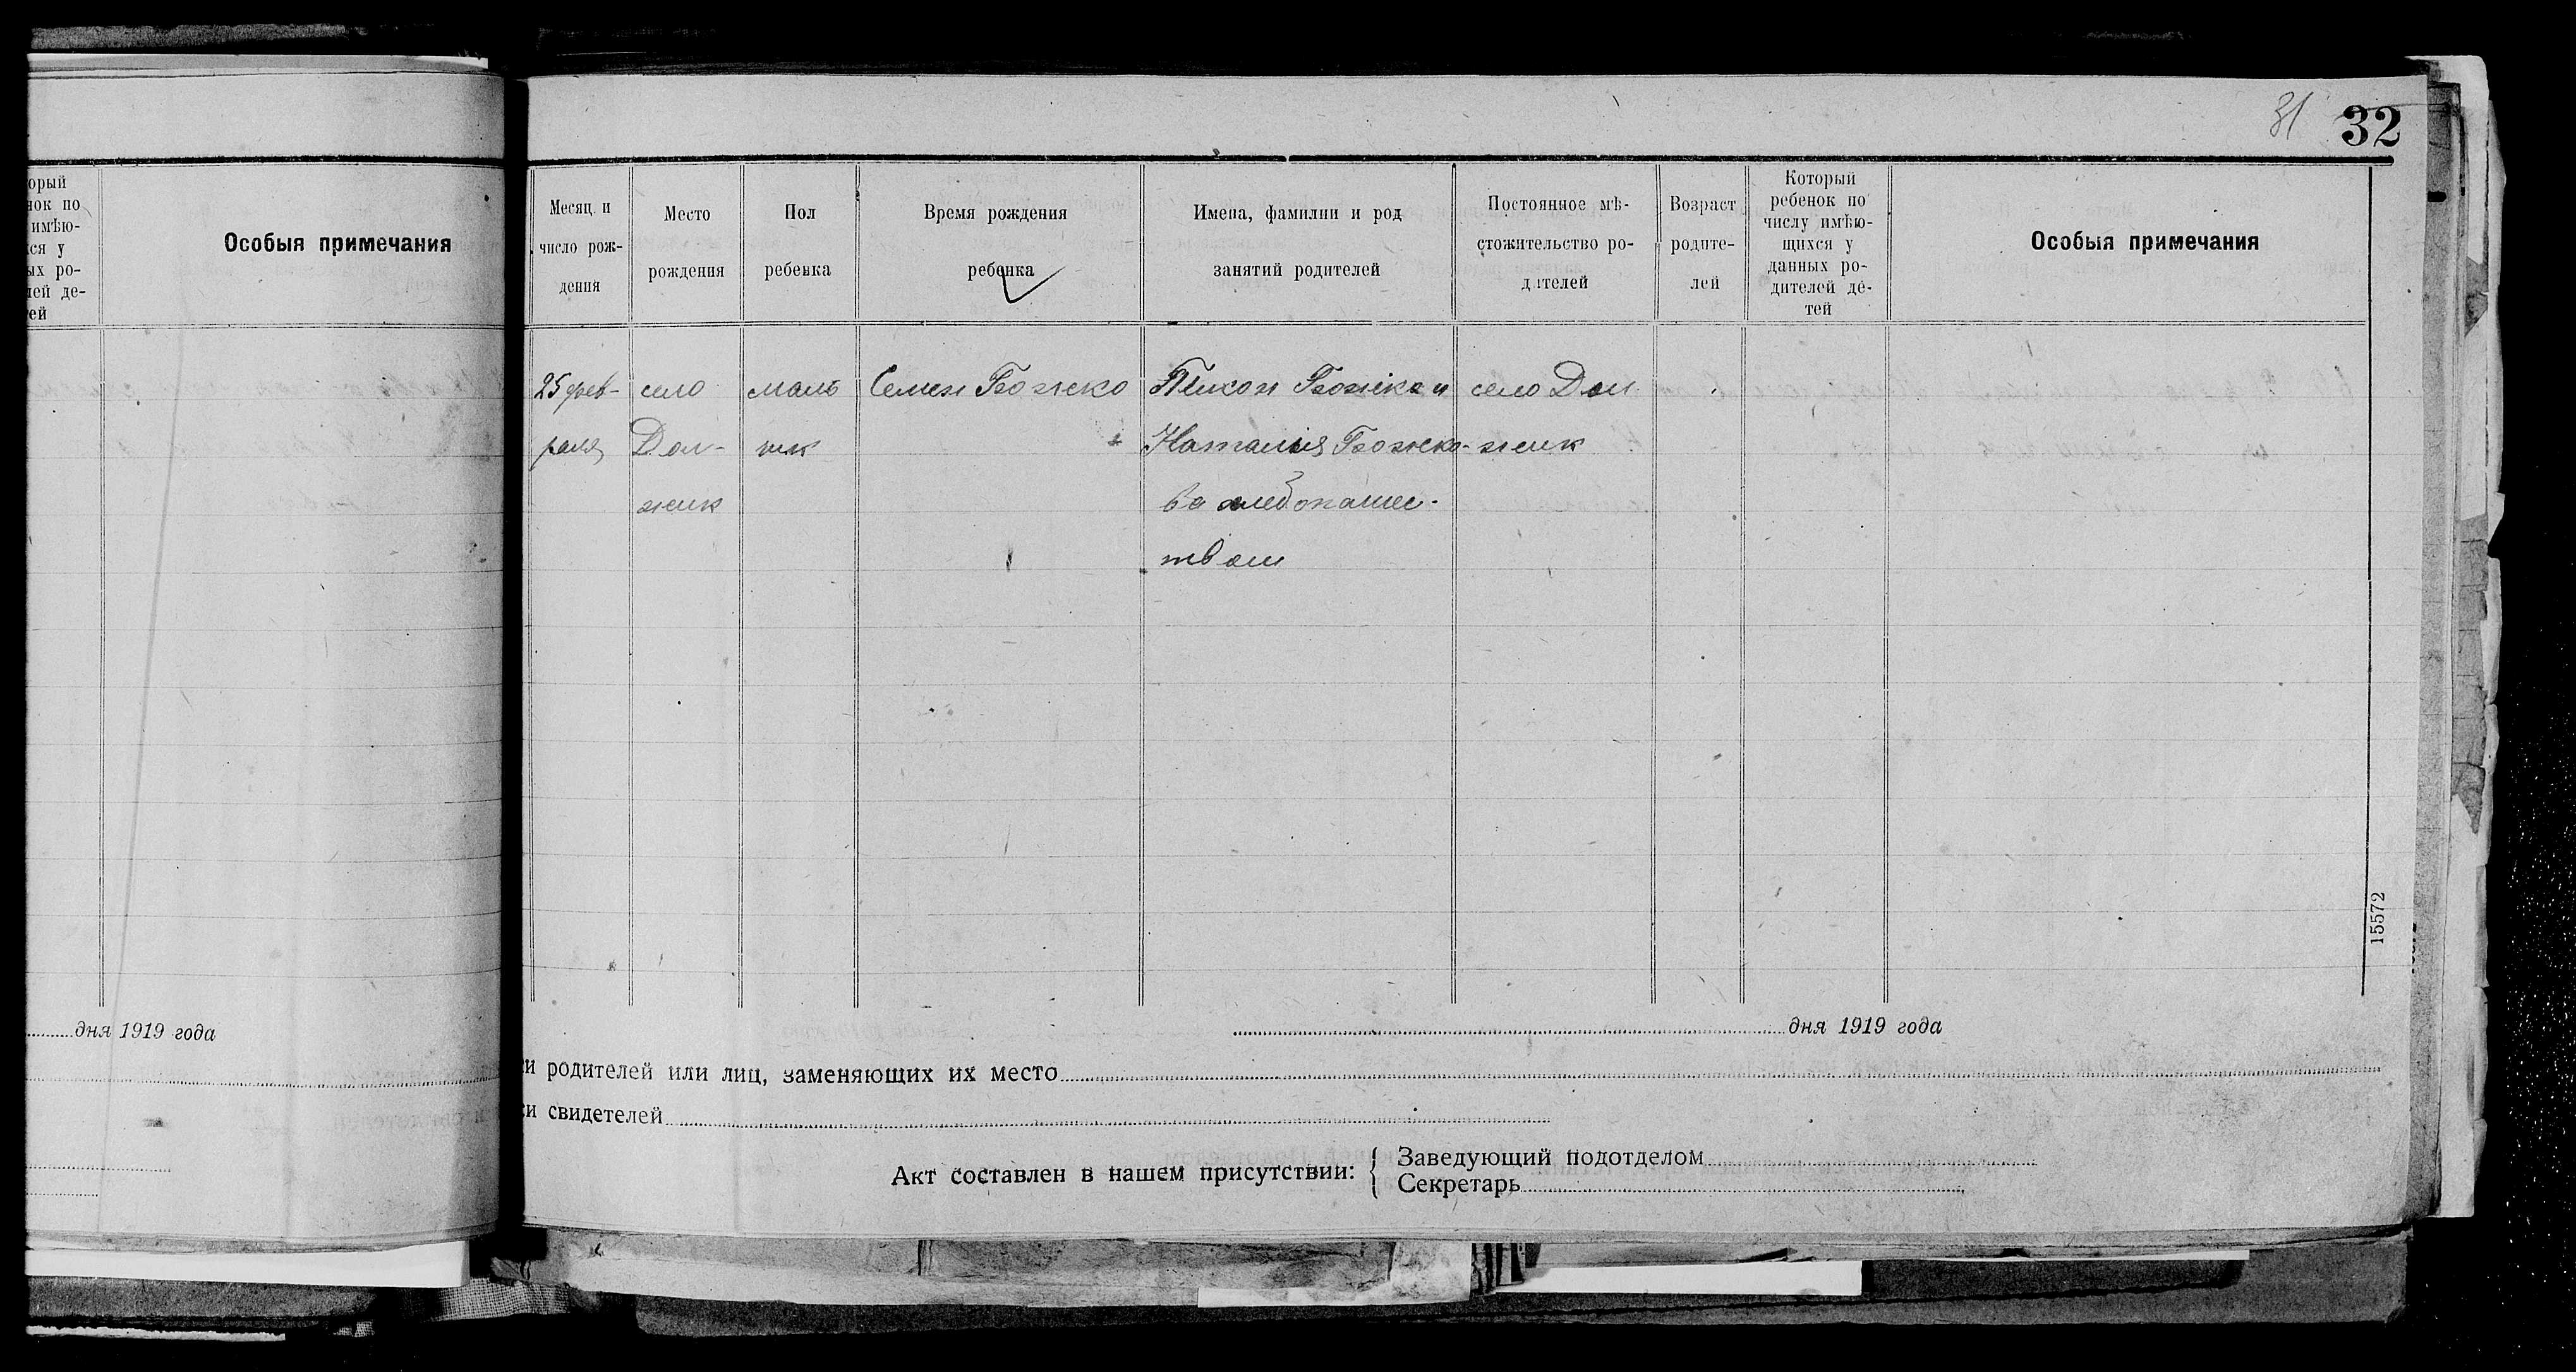 31 32
орый
нок по
имѣю-
ся у
ых ро-
лей де-
тей
Особыя примечания
дня 1919 года
Месяц и
число рож-
дения
Место
рождения
Пол
ребенка
Время рождения
ребенка
Имена, фамилии и род
занятий родителей
Постоянное мѣ-
стожительство ро-
дителей
Возраст
родите-
лей
Который
ребенок по
числу имѣю-
щихся у
данных ро-
дителей де-
тей
Особыя примечания
25 фев-
раля
село
Дол-
жик
маль
чик
Семен Божко
Божко и
Наталия Божко-
ва хлебопашес-
твом
село Дол
жик
15572
дня 1919 года
и родителей или лиц, заменяющих их место
и свидетелей
Акт составлен в нашем присутствии:
Заведующий подотделом
Секретарь